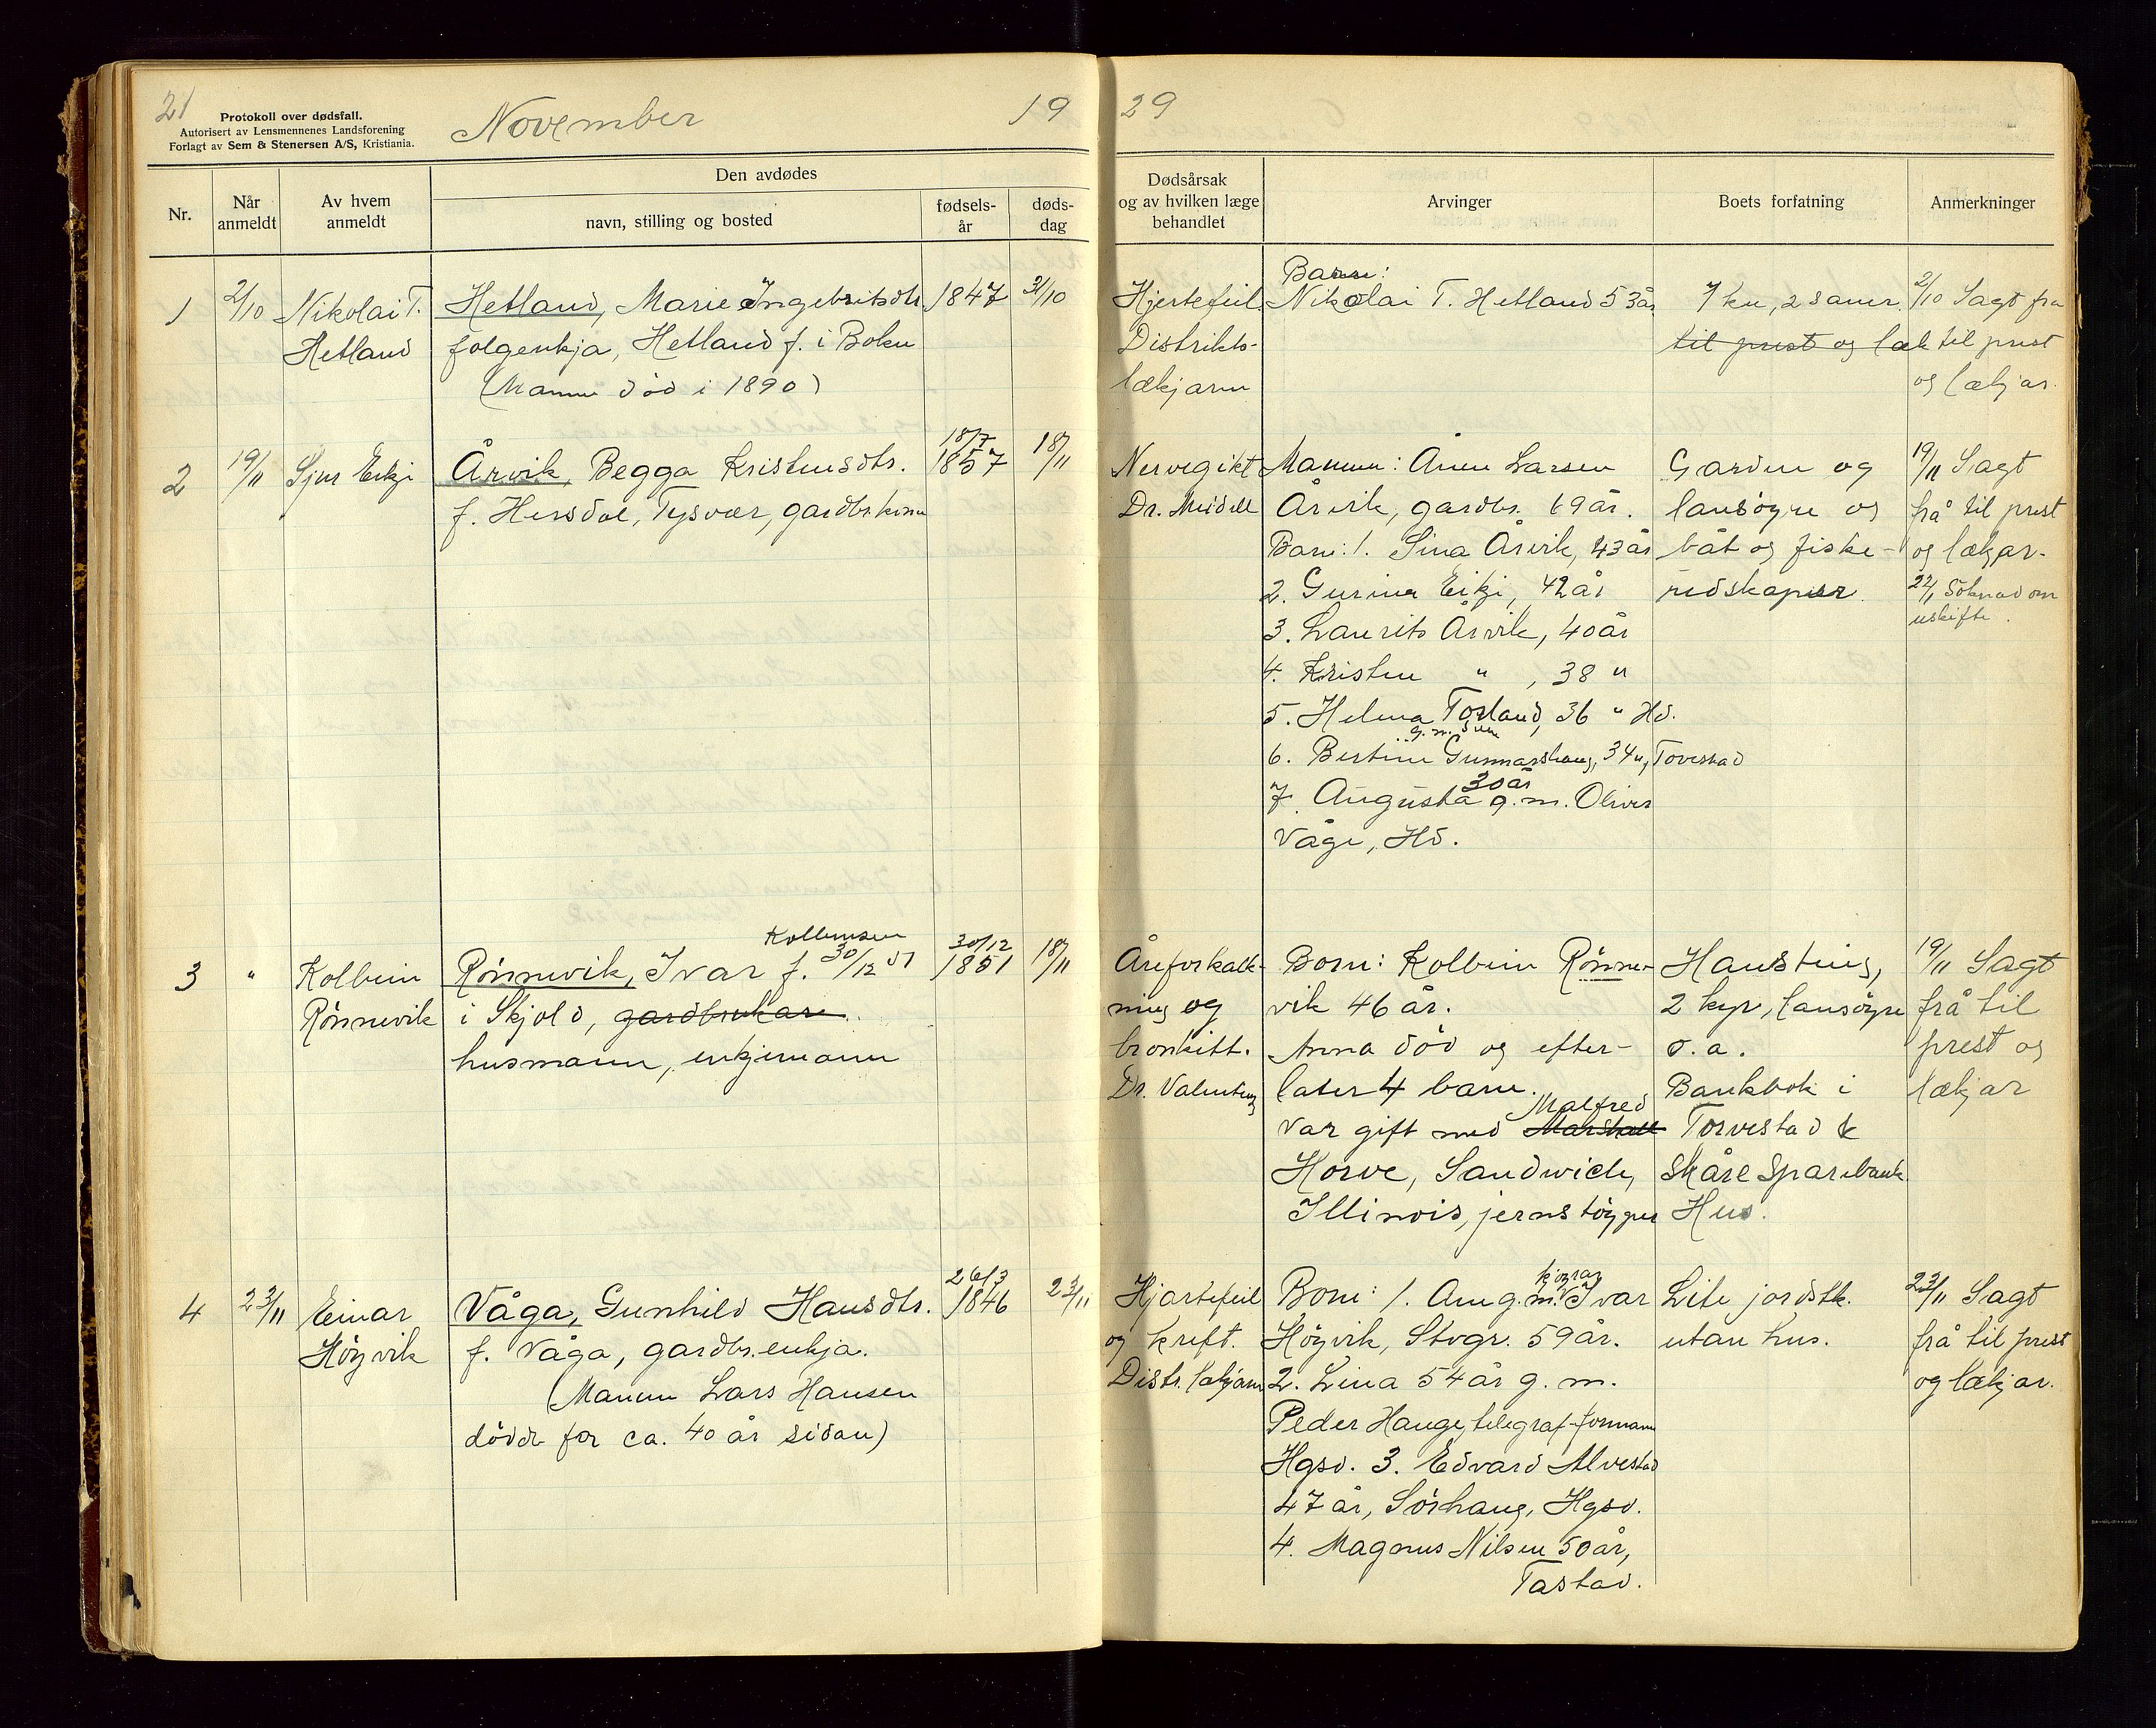 21
Protokoll over dødsfall.
Autorisert av Lensmennenes Landsforening
Forlagt av Sem & Stenersen A/S, Kristiania.
November
19
29
Nr.
Når anmeldt
Av hvem anmeldt
Den avdødes
navn, stilling og bosted
fødsels-år
døds-dag
Dødsårsak og av hvilken læge behandlet
Arvinger
Boets forfatning
Anmerkninger
1
2/10
Nikolai T.
Hetland
Hetland, Marie Ingebritsdtr.
folgenkja, Hetland f. i Bokn
(Mannen död i 1890)
1847
31/10
Hjertefeil.
Distrikts-
lækjaren
Barn:
Nikolai T. Hetland 53 år.
1 ku, 2 sauer.
til prest og læk
2/10 Sagt fra
til prest
og lækjar.
2
19/11
Sjur Eikje
Årvik, Begga Kristensdtr.
f. Hersdal, Tysvær, gardbr.kona
18/7
1857
18/11
Nervegikt
Dr. Meidell
Mannen: Anen Larsen
Årvik, gardbr. 69 år.
Barn: 1. Sina Årvik, 43 år
2. Gurina Eikje, 42 år
3. Laurits Årvik, 40 år
4. Kristen " , 38 "
5. Helena Torland, 36 " Hd.
g. m. Sven
6. Bertine Gunnarshaug, 34 ", Torvestad
30 år
7. Augusta g. m. Oliver
Våge, Hd.
Garden og
lausöyre og
båt og fiske-
reidskaper
19/11 Sagt
frå til prest
og lækjar.
22/11 Söknad om
uskifte.
3
"
Kolbein
Rönnevik
Kolbeinsen
Rönnevik, Ivar f. 30/12 51
i Skjold, gardbrukar.
husmann, enkjemann
30/12
1851
18/11
Åreforkalk-
ning og
bronkitt.
Dr. Valentin
Born: Kolbein Rönne-
vik 46 år.
Anna död og efter-
later 4 barn.
Malfred
Var gift med Marshall
Horve, Sandwich,
Illinois, jernstöyper
Hausting,
2 kyr, lausöyre
o. a.
Bankbok i
Torvestad &
Skåre Sparebank
Hus.
19/11 Sagt
frå til
prest og
lækjar
4
23/11
Einar
Höyvik
Våga, Gunhild Hansdtr.
f. Våga, gardbr.enkja.
(Mannen Lars Hansen
döde for ca. 40 år sidan)
26/3
1846
23/11
Hjartefeil
og kreft.
Distr. lækjaren
Born: 1. Ane g. m. Ivar
Höyvik, Stvgr. 59 år.
2. Lina 54 år g. m.
Peder Hauge, telegraf-formann
Hgsd. 3. Edvard Alvestad
47 år, Sörhaug, Hgsd.
4. Magnus Nilsen 50 år,
Tastad.
Lite jordstk.
utan hus.
23/11 Sagt
frå til prest
og lækjar.